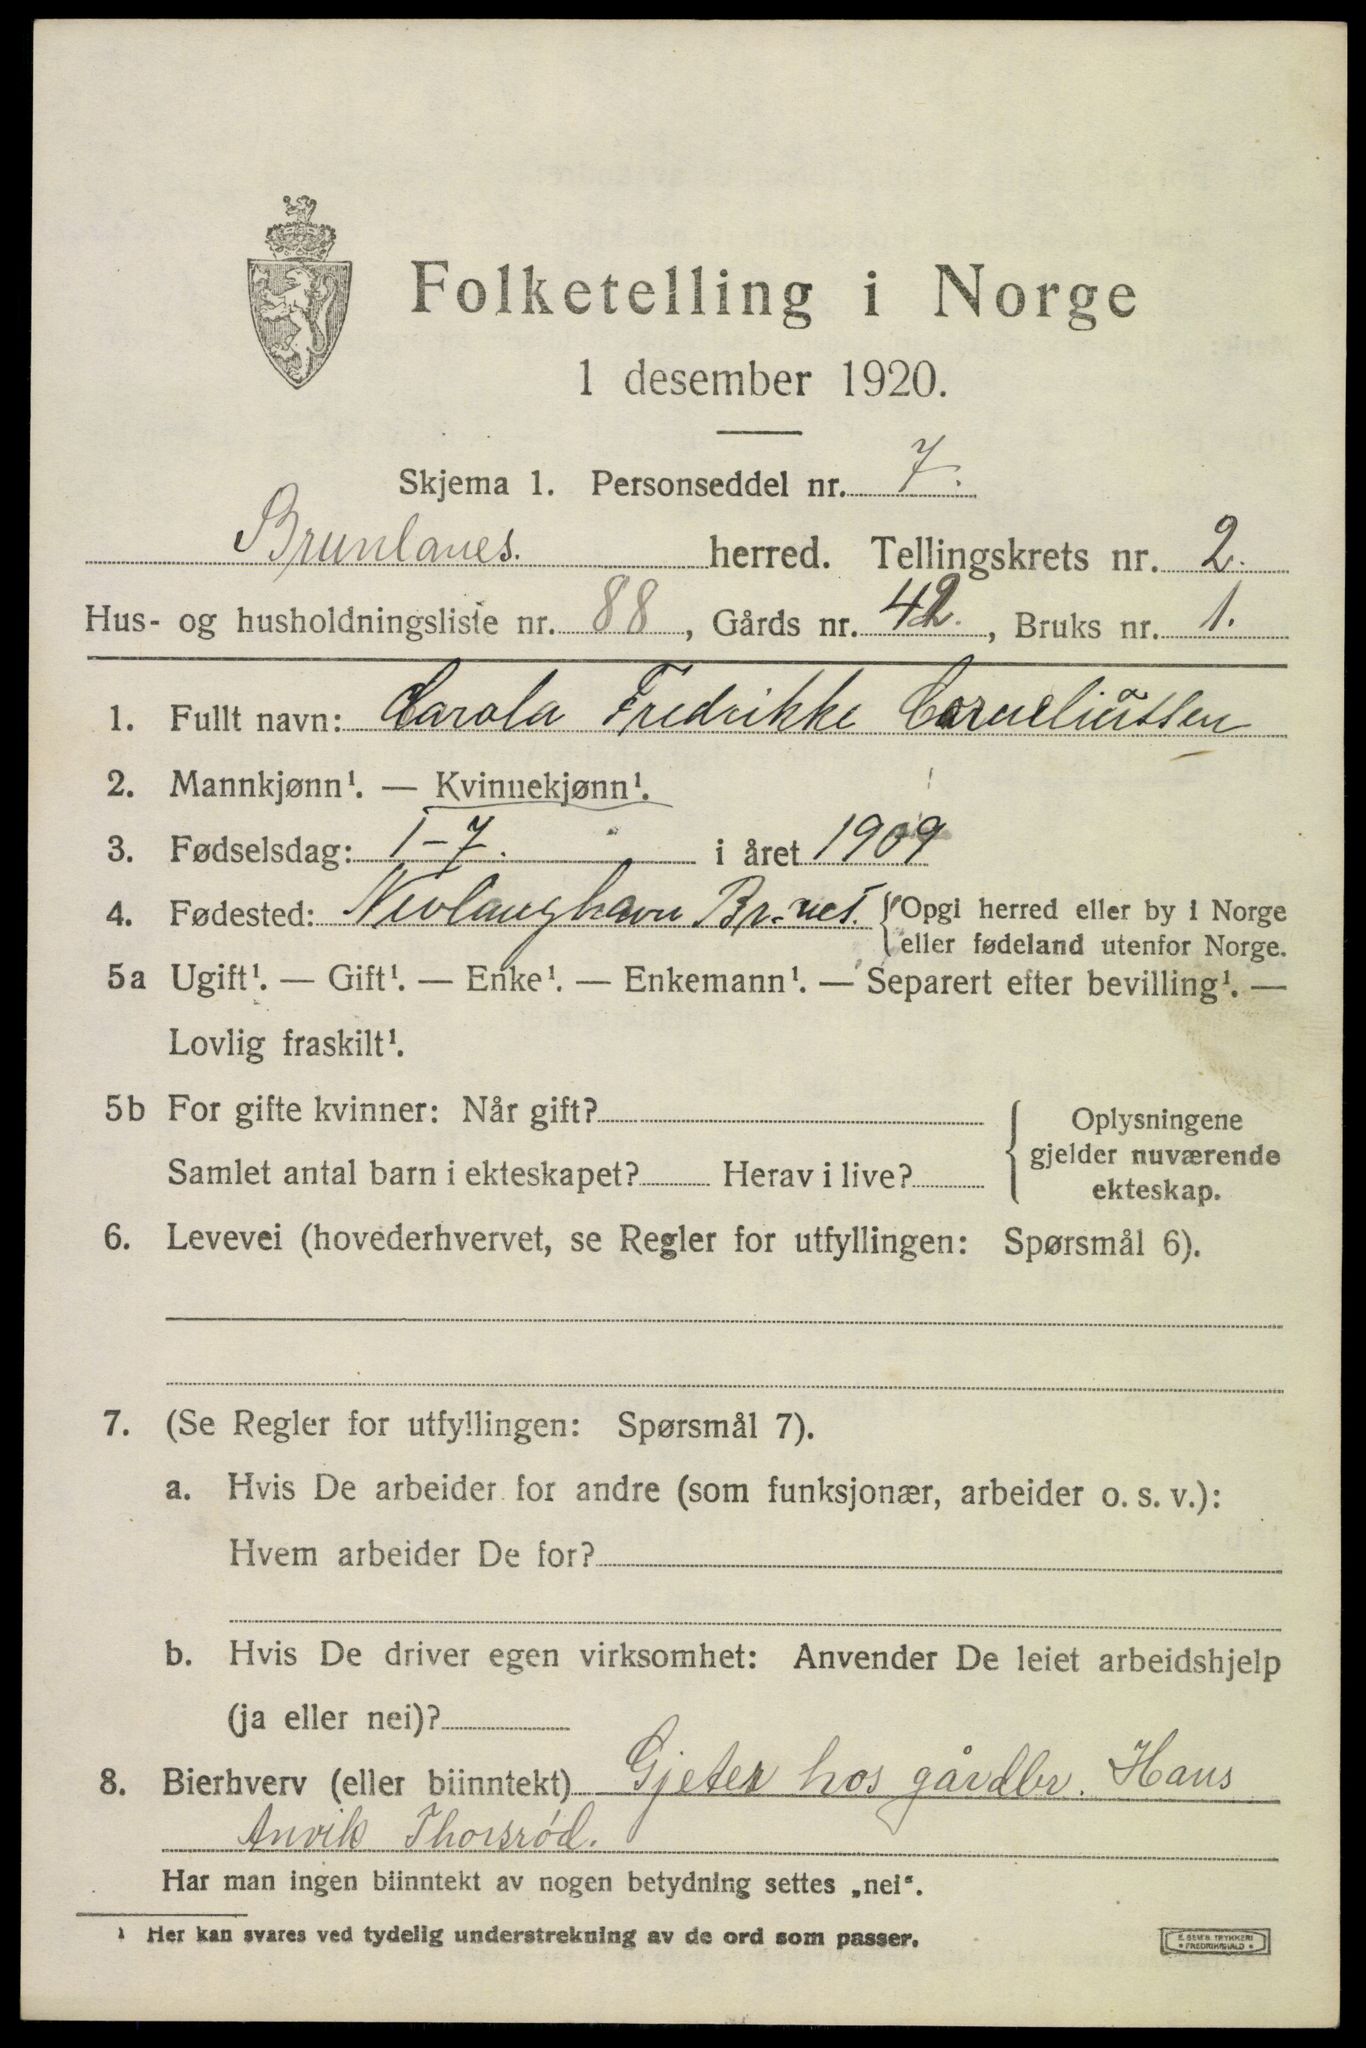 Folketelling i Norge
1 desember 1920.
Skjema 1. Personseddel nr. 7.
Brunlanes. herred. Tellingskrets nr. 2.
Hus- og husholdningsliste nr. 88, Gårds nr. 42., Bruks nr. 1.
1. Fullt navn: Carola Fredrikke Corneliussen
2. Mannkjønn¹. — Kvinnekjønn¹.
3. Fødselsdag: 1-7. i året 1909
4. Fødested: Nevlanghavn Br.nes. {Opgi herred eller by i Norge
eller fødeland utenfor Norge.
5a Ugift¹. — Gift¹. — Enke¹. — Enkemann¹. — Separert efter bevilling¹. —
Lovlig fraskilt¹.
5b For gifte kvinner: Når gift?
Samlet antal barn i ekteskapet? Herav i live?
{ Oplysningene
gjelder nuværende
ekteskap.
6. Levevei (hovederhvervet, se Regler for utfyllingen: Spørsmål 6).
7. (Se Regler for utfyllingen: Spørsmål 7).
a. Hvis De arbeider for andre (som funksjonær, arbeider o. s. v.):
Hvem arbeider De for?
b. Hvis De driver egen virksomhet: Anvender De leiet arbeidshjelp
(ja eller nei)?
8. Bierhverv (eller biinntekt) Gjeter hos gårdbr. Hans
Anvik Thorsrød.
Har man ingen biinntekt av nogen betydning settes „nei".
¹ Her kan svares ved tydelig understrekning av de ord som passer.
E. SEM'S TRYKKERI
FREDRIKSHALD